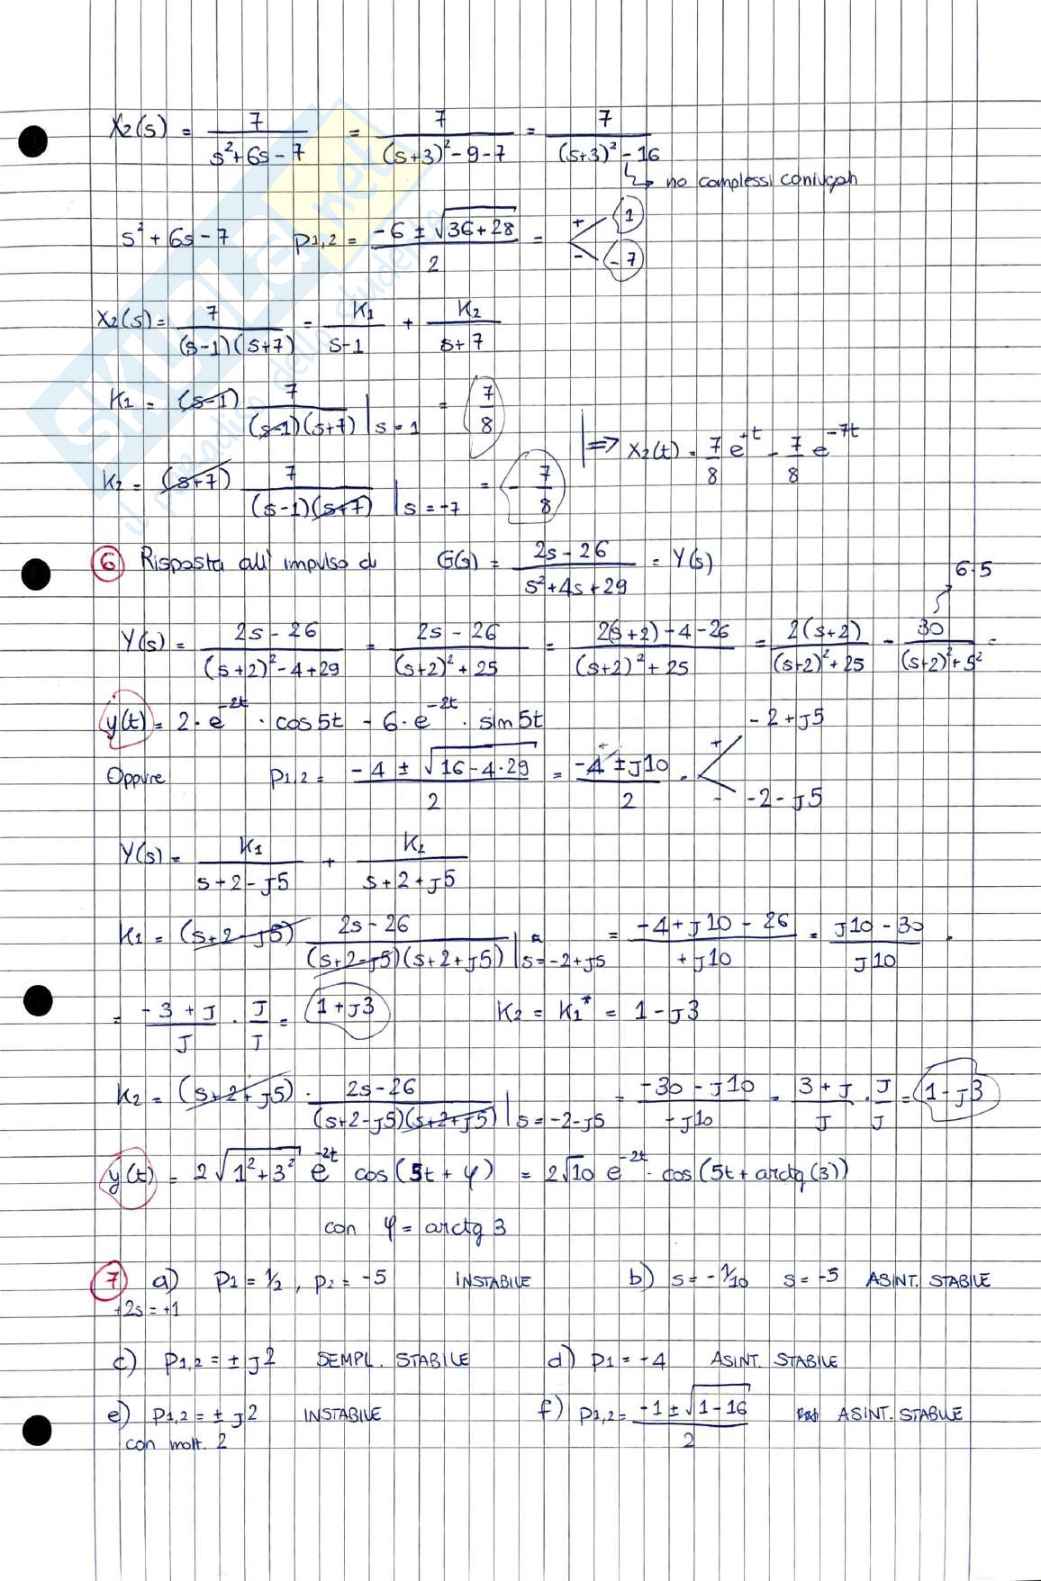 X₂(s) = 7/(s²+6s-7) = 7/((s+3)²-9-7) = 7/((s+3)²-16)
↳ no complessi coniugati
s²+6s-7   p1,2 = (-6 ± √(36+28))/2 = + 1, - -7
X₂(s) = 7/((s-1)(s+7)) = K1/(s-1) + K2/(s+7)
K1 = (s-1) 7/((s-1)(s+7)) |s=1 = 7/8
⇒ X₂(t) = 7/8 e^{+t} - 7/8 e^{-7t}
K2 = (s+7) 7/((s-1)(s+7)) |s=-7 = -7/8
⑥ Risposta all' impulso di   G(s) = (2s-26)/(s²+4s+29) = Y(s)
6·5
Y(s) = (2s-26)/((s+2)²-4+29) = (2s-26)/((s+2)²+25) = (2(s+2)-4-26)/((s+2)²+25) = 2(s+2)/((s+2)²+25) - 30/((s+2)²+5²) =
y(t) = 2·e^{-2t}·cos5t - 6·e^{-2t}·sin5t
Oppure   p1,2 = (-4 ± √(16-4·29))/2 = (-4 ± J10)/2 = + -2+J5, - -2-J5
Y(s) = K1/(s+2-J5) + K2/(s+2+J5)
K1 = (s+2-J5) (2s-26)/((s+2-J5)(s+2+J5)) |s=-2+J5 = (-4+J10-26)/(+J10) = (J10-30)/J10 ·
= (-3+J)/J · J/J = 1+J3   K2 = K1* = 1-J3
K2 = (s+2+J5) · (2s-26)/((s+2-J5)(s+2+J5)) |s=-2-J5 = (-30-J10)/(-J10) = (3+J)/J · J/J = 1-J3
y(t) = 2√(1²+3²) e^{-2t} cos(5t+φ) = 2√10 e^{-2t}·cos(5t+arctg(3))
con φ = arctg 3
⑦ a) p1 = 1/2, p2 = -5   INSTABILE   b) s = -1/10   s = -5   ASINT. STABILE
+2s=+1
c) p1,2 = ± J2   SEMPL. STABILE   d) p1 = -4   ASINT. STABILE
e) p1,2 = ± J2   INSTABILE   f) p1,2 = (-1 ± √(1-16))/2   ASINT. STABILE
con molt. 2
SKUOLA.net